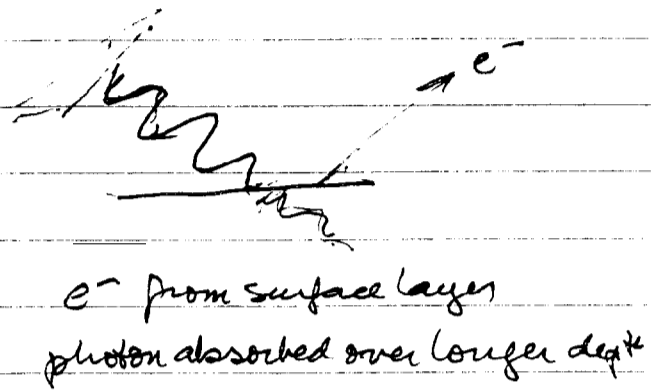 e⁻
e⁻ from surface layer
photon absorbed over longer depth